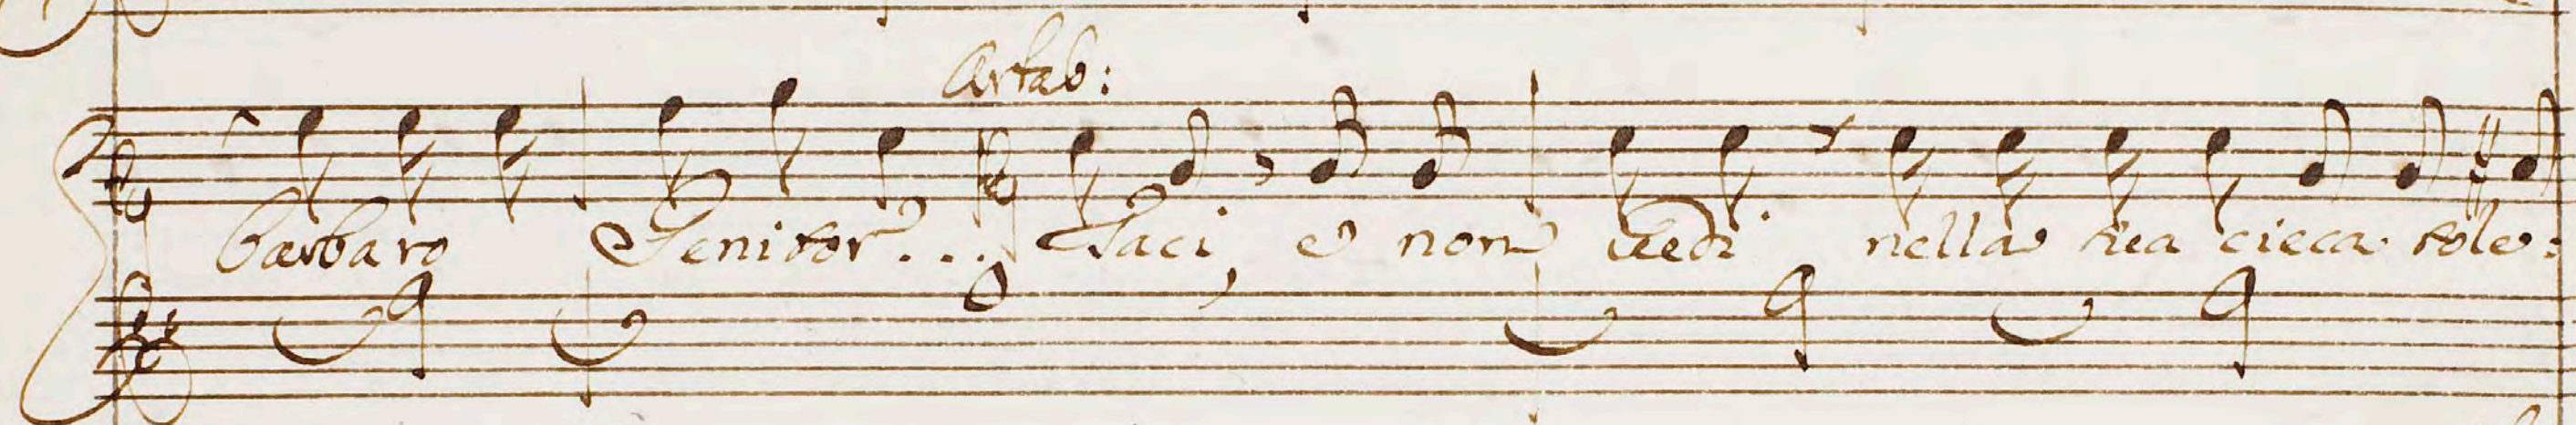 Artab:
barbaro Genitor.... Taci, e non vedi nella tua cieca tole: